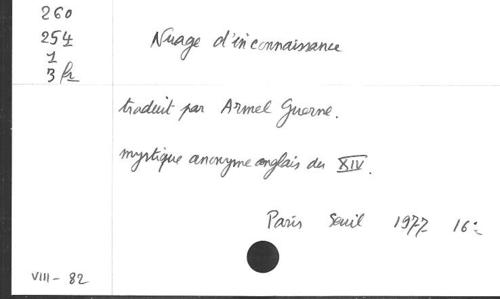 260
254
1
3 fr
Nuage d'inconnaissance
traduit par Armel Guerne.
mystique anonyme anglais du XIV.
Paris Seuil 1977 16°
VIII - 82